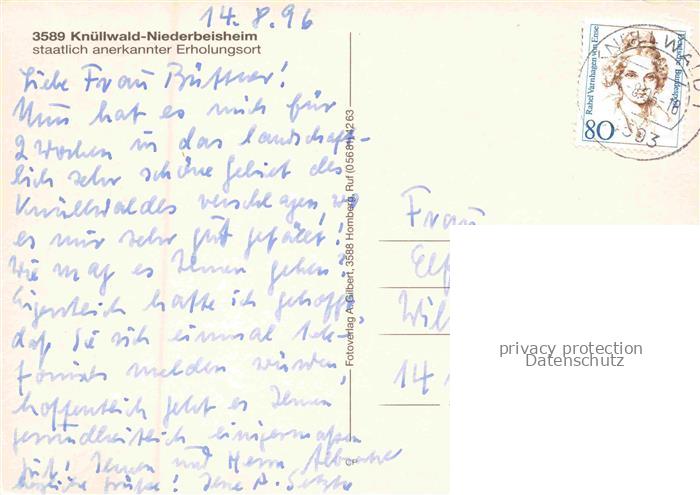 14.8.96
3589 Knüllwald-Niederbeisheim
staatlich anerkannter Erholungsort
Liebe Frau Büttner!
Nun hat es mich für
2 Wochen in das landschaft-
lich sehr schöne Gebiet des
Knüllwaldes verschlagen, wo
es mir sehr gut gefällt!
Wie mag es Ihnen gehen?
Eigentlich hatte ich gehofft,
daß Sie sich einmal tele-
fonisch melden würden,
hoffentlich geht es Ihnen
gesundheitlich einigermaßen
gut! Ihnen und Herrn
herzliche Grüße! Ihre
Fotoverlag A. Gilbert, 3588 Homberg, Ruf (05681) 4263
CP
Rahel Varnhagen von Ense
Deutsche Bundespost
80
593
Frau
14
privacy protection
Datenschutz